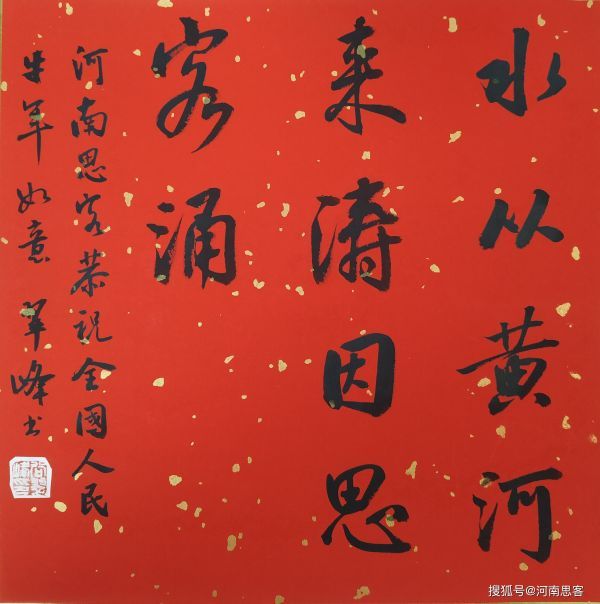 水从黄河
来涛因思
客涌
河南思客恭祝全國人民
牛年如意 军峰书
搜狐号@河南思客